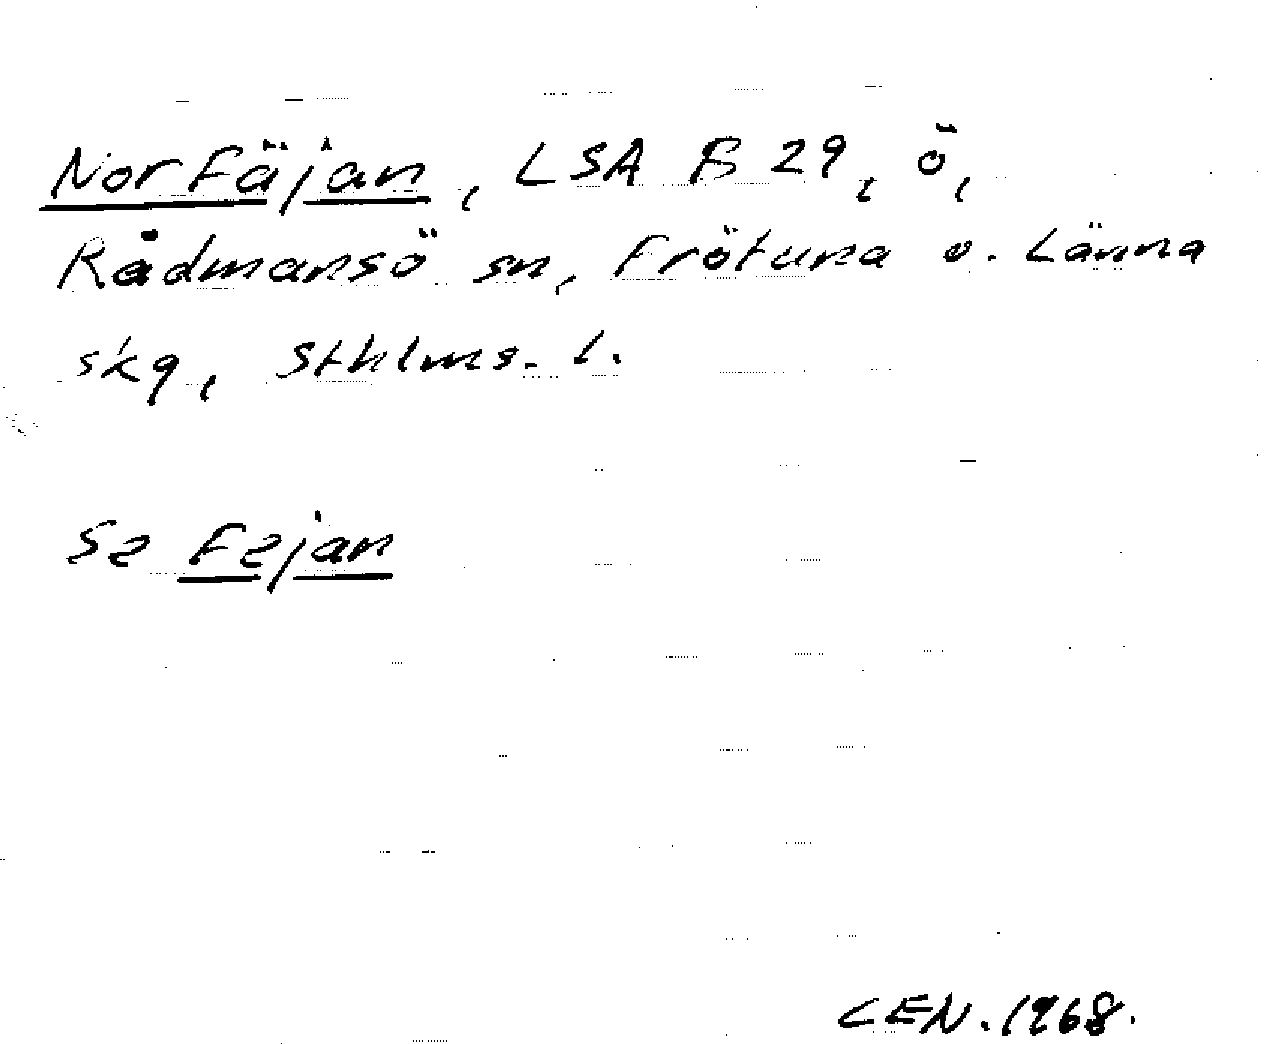 Nor Fäjan, LSA B 29, ö,
Rådmansö sn, Frötuna o. Länna
skg, Sthlms. l.
Se Fejan
CEN. 1968.